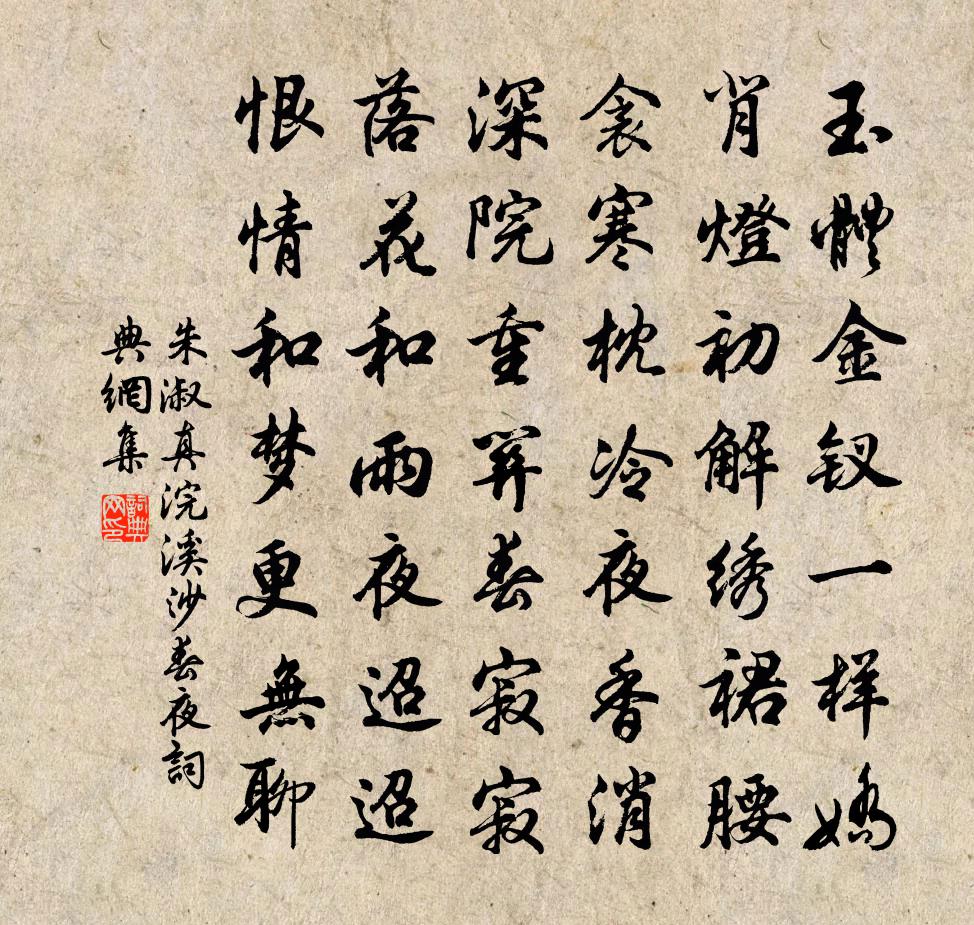 玉體金钗一样嬌
背燈初解绣裙腰
衾寒枕冷夜香消
深院重關春寂寂
落花和雨夜迢迢
恨情和梦更無聊
朱淑真浣溪沙春夜詞
典網集
詞典
网印